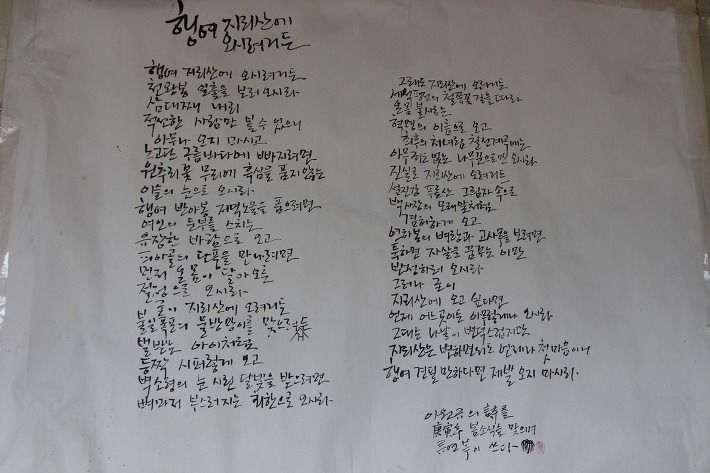 행여 지리산에
오시려거든
행여 지리산에 오시려거든
천왕봉 일출을 보러 오시라
삼대째 내리
적선한 사람만 볼 수 있으니
아무나 오지 마시고
노고단 구름바다에 빠지려면
원추리꽃 무리에 흑심을 품지 않는
이슬의 눈으로 오시라
행여 반야봉 저녁노을을 품으려면
여인의 둔부를 스치는
유장한 바람으로 오고
피아골의 단풍을 만나려면
먼저 온몸이 달아오른
절정으로 오시라
굳이 지리산에 오려거든
불일폭포의 물방망이를 맞으러
벌받는 아이처럼
등짝 시퍼렇게 오고
벽소령의 눈 시린 달빛을 받으려면
뼈마저 부스러지는 회한으로 오시라
그래도 지리산에 오려거든
세석평전의 철쭉꽃 길을 따라
온몸 불사르는
혁명의 이름으로 오고
최후의 처녀림 칠선계곡에는
아무 죄도 없는 나무꾼으로만 오시라
진실로 지리산에 오려거든
섬진강 푸른 산 그림자 속으로
백사장의 모래알처럼
겸허하게 오고
연하봉의 벼랑과 고사목을 보려면
툭하면 자살을 꿈꾸는 이만
반성하러 오시라
그러나 굳이
지리산에 오고 싶다면
언제 어느 곳이든 아무렇게나 오시라
그대는 나날이 변덕스럽지만
지리산은 변하면서도 언제나 첫 마음이니
행여 견딜 만하다면 제발 오지 마시라.
이원규의 詩를
庚寅年 봄소식을 맞으며
쓰다